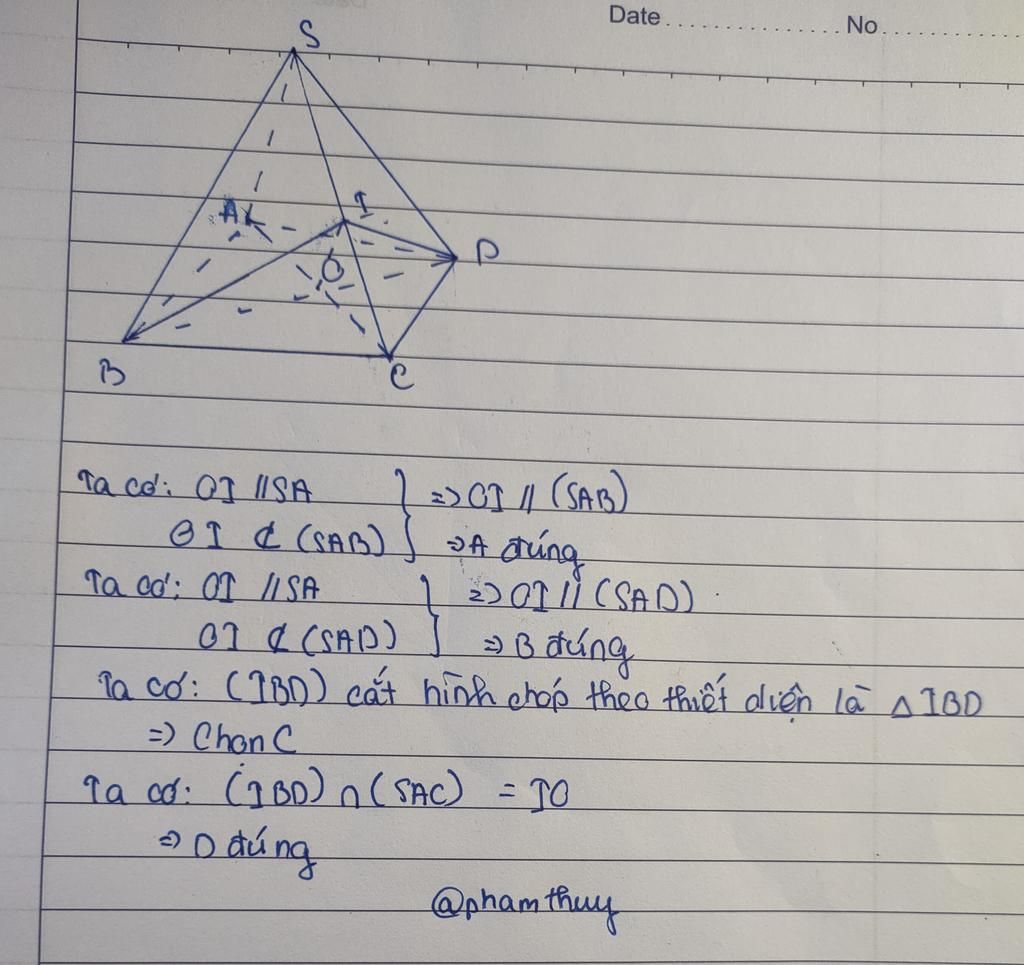 Date .............. No ..............
S
A
I
O
D
B
C
Ta có: OI // SA } => OI // (SAB)
OI ⊄ (SAB) => A đúng
Ta có: OI // SA } => OI // (SAD)
OI ⊄ (SAD) => B đúng
Ta có: (IBD) cắt hình chóp theo thiết diện là △IBD
=> Chọn C
Ta có: (IBD) ∩ (SAC) = IO
=> D đúng
@phamthuy